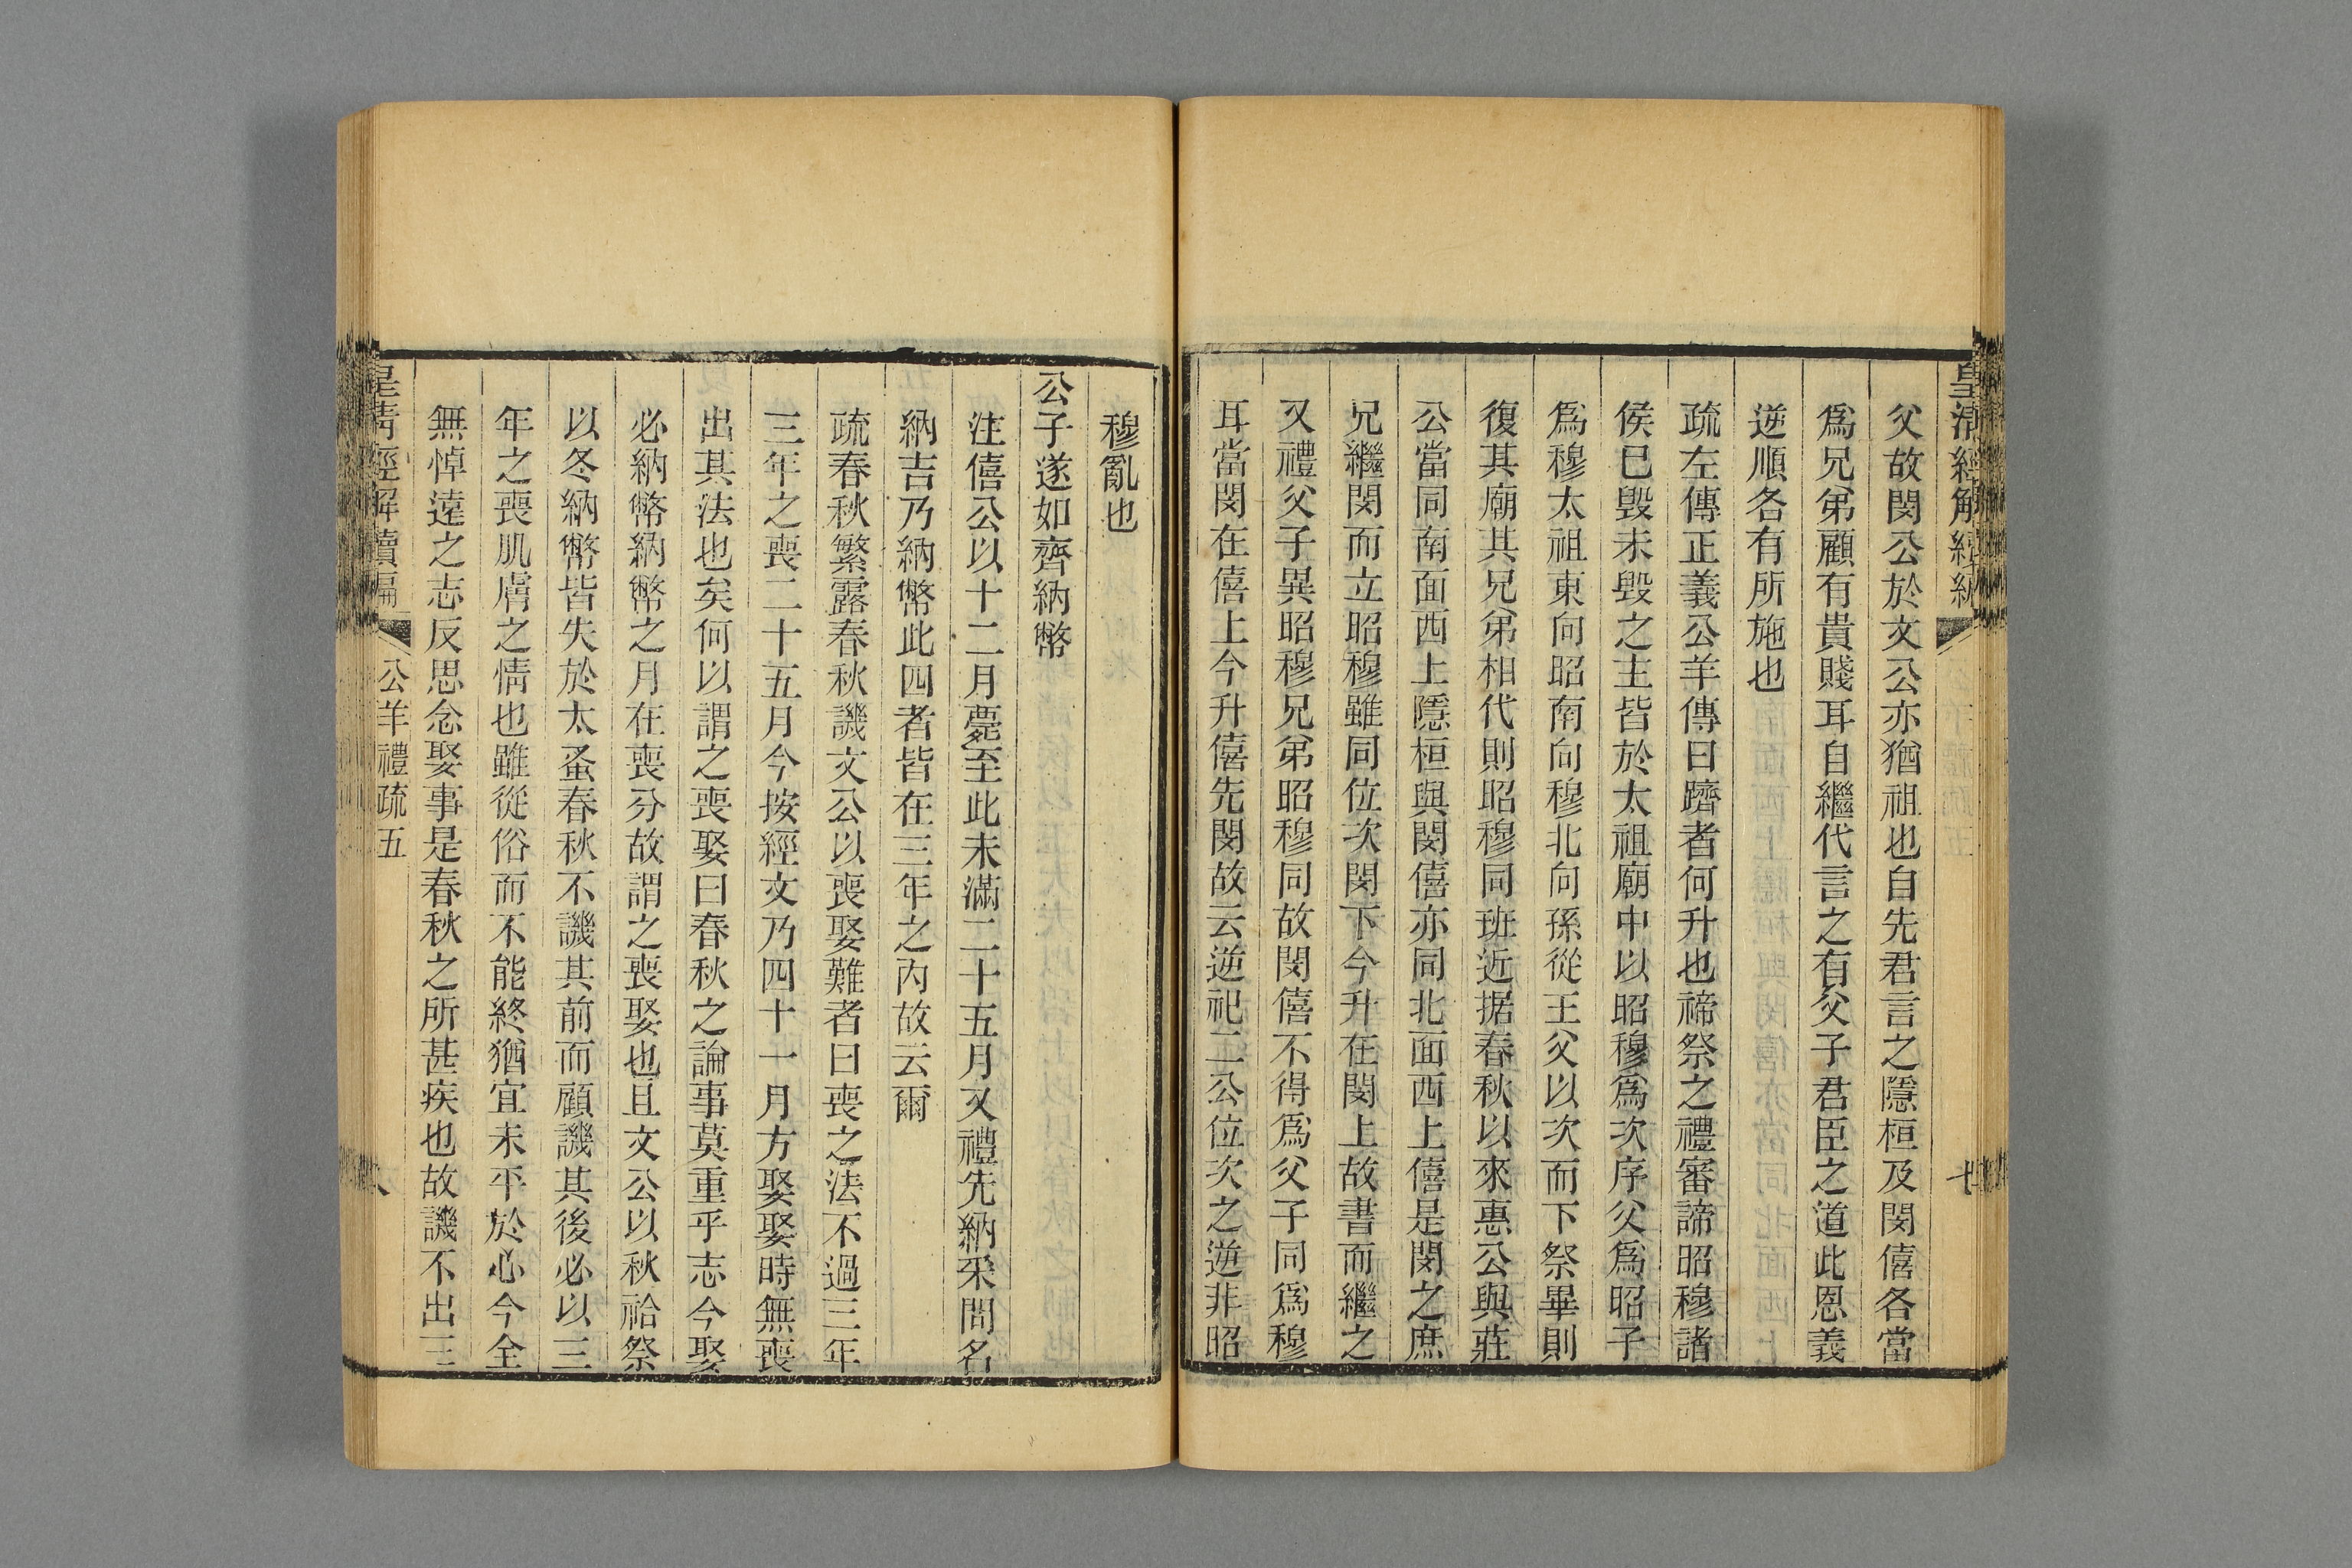 皇清經解續編
父故閔公於文公亦猶祖也自先君言之隱桓及閔僖各當
爲兄弟顧有貴賤耳自繼代言之有父子君臣之道此恩義
逆順各有所施也
疏左傳正義公羊傳曰躋者何升也禘祭之禮審諦昭穆諸
侯已毀未毀之主皆於太祖廟中以昭穆爲次序父爲昭子
爲穆太祖東向昭南向穆北向孫從王父以次而下祭畢則
復其廟其兄弟相代則昭穆同班近据春秋以來惠公與莊
公當同南面西上隱桓與閔僖亦同北面西上僖是閔之庶
兄繼閔而立昭穆雖同位次閔下今升在閔上故書而繼之
又禮父子異昭穆兄弟昭穆同故閔僖不得爲父子同爲穆
耳當閔在僖上今升僖先閔故云逆祀二公位次之逆非昭
穆亂也
公子遂如齊納幣
注僖公以十二月薨至此未滿二十五月又禮先納采問名
納吉乃納幣此四者皆在三年之內故云爾
疏春秋繁露春秋譏文公以喪娶難者曰喪之法不過三年
三年之喪二十五月今按經文乃四十一月方娶娶時無喪
出其法也矣何以謂之喪娶曰春秋之論事莫重乎志今娶
必納幣納幣之月在喪分故謂之喪娶也且文公以秋祫祭
以冬納幣皆失於太蚤春秋不譏其前而顧譏其後必以三
年之喪肌膚之情也雖從俗而不能終猶宜未平於心今全
無悼遠之志反思念娶事是春秋之所甚疾也故譏不出三
皇清經解續編
公羊禮疏五
八